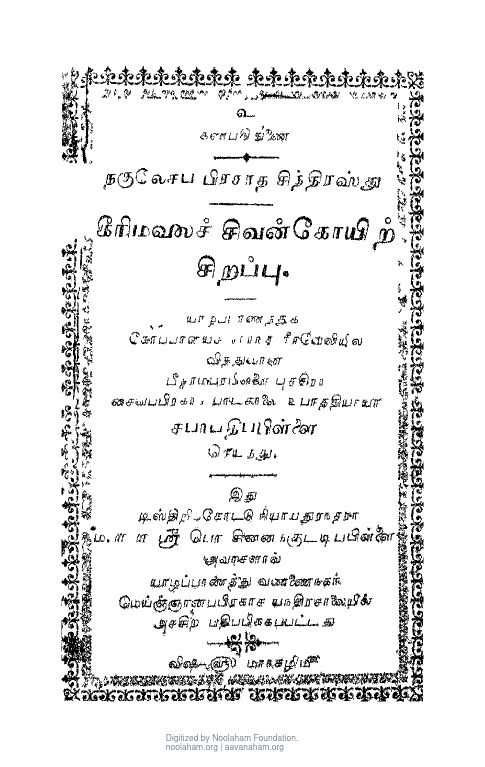 உ
கணபதி துணை
நகுலேசப பிரசாத சித்திரஸ்து
கீரிமலைச் சிவன்கோயிற்
சிறப்பு.
யாழ்ப்பாணத்துக்
வித்துவான்
பீதாம்பரபிள்ளை புத்திரர்
சைவப்பிரகாச பாடசாலை உபாத்தியாயர்
சபாபதிப்பிள்ளை
செய்தது.
இது
டிஸ்திறிக்கோட்டு நியாயதுரந்தரர்
ஸ்ரீ பொ சின்னக்குட்டிப்பிள்ளை
அவர்களால்
யாழ்ப்பாணத்து வண்ணைநகர்
மெய்ஞ்ஞானப்பிரகாச யந்திரசாலையில்
அச்சிற் பதிப்பிக்கப்பட்டது
விஷு மார்கழிமீ
Digitized by Noolaham Foundation.
noolaham.org | aavanaham.org